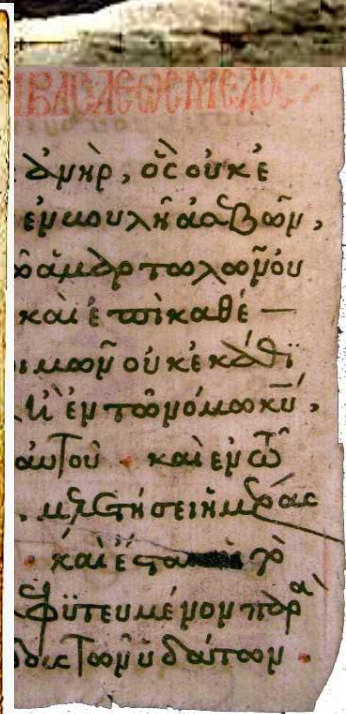 ΒΑCΛΕΩC ΜΕΛΟC:
ἀνὴρ, ὃς οὐκ ἐ
ἐν βουλῆ ἀσεβῶν,
ἁμαρτωλῶν οὐ
καὶ ἐπι καθέ —
ιμῶν οὐκ ἐκάθϊ
ἐν τῶ νόμω κ̅υ̅,
αυτοῦ · καὶ ἐν τῶ
μελετήσει ἡμέρας
καὶ ἔσται
φϋτευμένον παρὰ
τῶν ὑδάτων ·